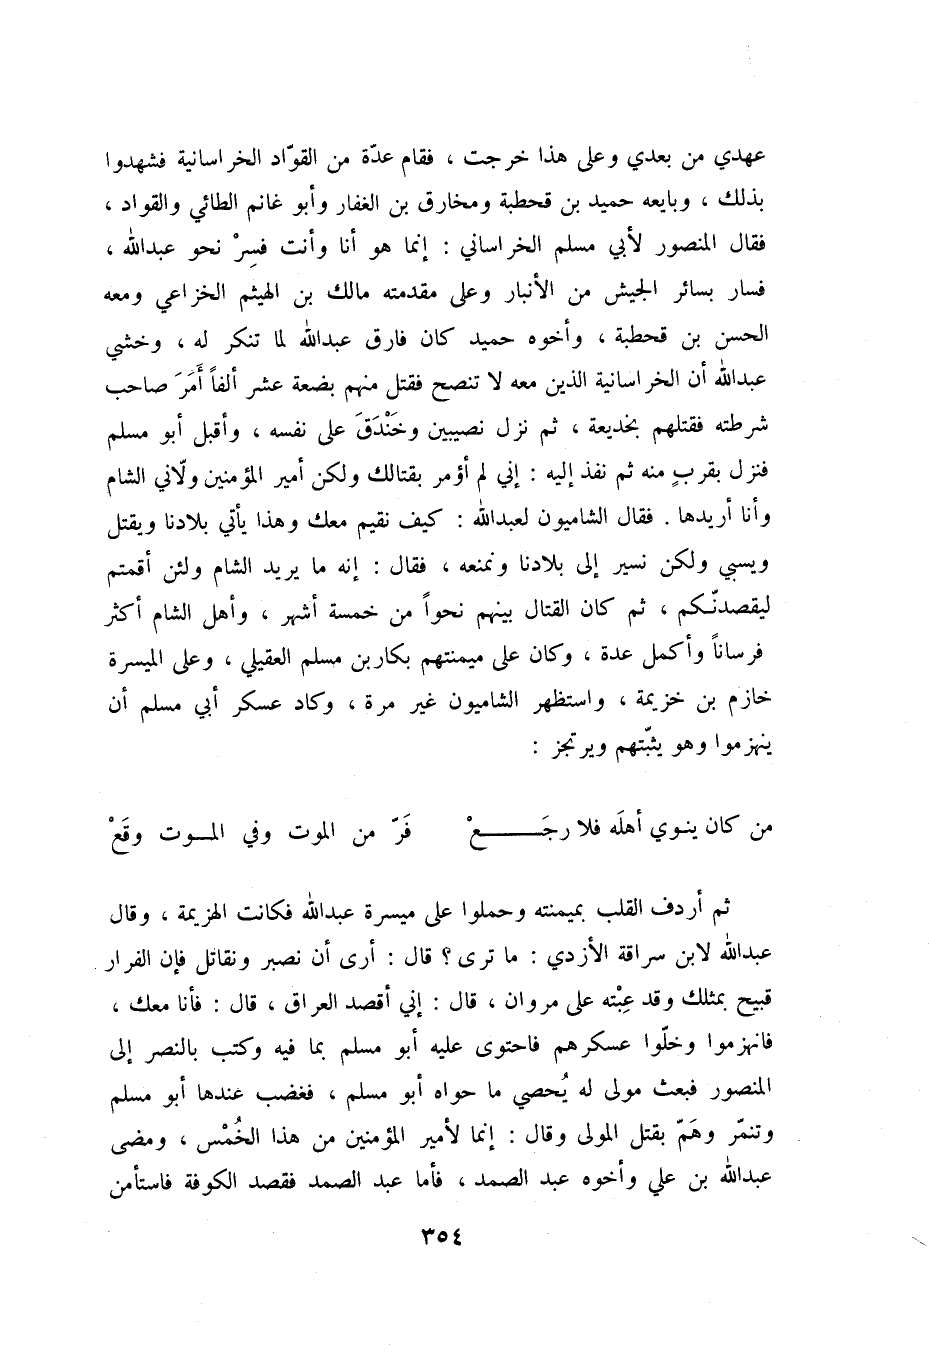 عهدي من بعدي وعلى هذا خرجت ، فقام عدّة من القوّاد الخراسانية فشهدوا
بذلك ، وبايعه حميد بن قحطبة ومخارق بن الغفار وأبو غانم الطائي والقواد ،
فقال المنصور لأبي مسلم الخراساني : إنما هو أنا وأنت فسِرْ نحو عبدالله ،
فسار بسائر الجيش من الأنبار وعلى مقدمته مالك بن الهيثم الخزاعي ومعه
الحسن بن قحطبة ، وأخوه حميد كان فارق عبدالله لما تنكر له ، وخشي
عبدالله أن الخراسانية الذين معه لا تنصح فقتل منهم بضعة عشر ألفاً أَمَرَ صاحب
شرطته فقتلهم بخديعة ، ثم نزل نصيبين وخَنْدَقَ على نفسه ، وأقبل أبو مسلم
فنزل بقربٍ منه ثم نفذ إليه : إني لم أؤمر بقتالك ولكن أمير المؤمنين ولّاني الشام
وأنا أريدها . فقال الشاميون لعبدالله : كيف نقيم معك وهذا يأتي بلادنا ويقتل
ويسبي ولكن نسير إلى بلادنا ونمنعه ، فقال : إنه ما يريد الشام ولئن أقمتم
ليقصدنّكم ، ثم كان القتال بينهم نحواً من خمسة أشهر ، وأهل الشام أكثر
فرساناً وأكمل عدة ، وكان على ميمنتهم بكار بن مسلم العقيلي ، وعلى الميسرة
خازم بن خزيمة ، واستظهر الشاميون غير مرة ، وكاد عسكر أبي مسلم أن
ينهزموا وهو يثبّتهم ويرتجز :
من كان ينوي أهلَه فلا رجَـــــعْ فَرّ من الموت وفي المـوت وقَعْ
ثم أردف القلب بميمنته وحملوا على ميسرة عبدالله فكانت الهزيمة ، وقال
عبدالله لابن سراقة الأزدي : ما ترى ؟ قال : أرى أن نصبر ونقاتل فإن الفرار
قبيح بمثلك وقد عِبْته على مروان ، قال : إني أقصد العراق ، قال : فأنا معك ،
فانهزموا وخلّوا عسكرهم فاحتوى عليه أبو مسلم بما فيه وكتب بالنصر إلى
المنصور فبعث مولى له يُحصي ما حواه أبو مسلم ، فغضب عندها أبو مسلم
وتنمّر وهَمّ بقتل المولى وقال : إنما لأمير المؤمنين من هذا الخُمْس ، ومضى
عبدالله بن علي وأخوه عبد الصمد ، فأما عبد الصمد فقصد الكوفة فاستأمن
٣٥٤